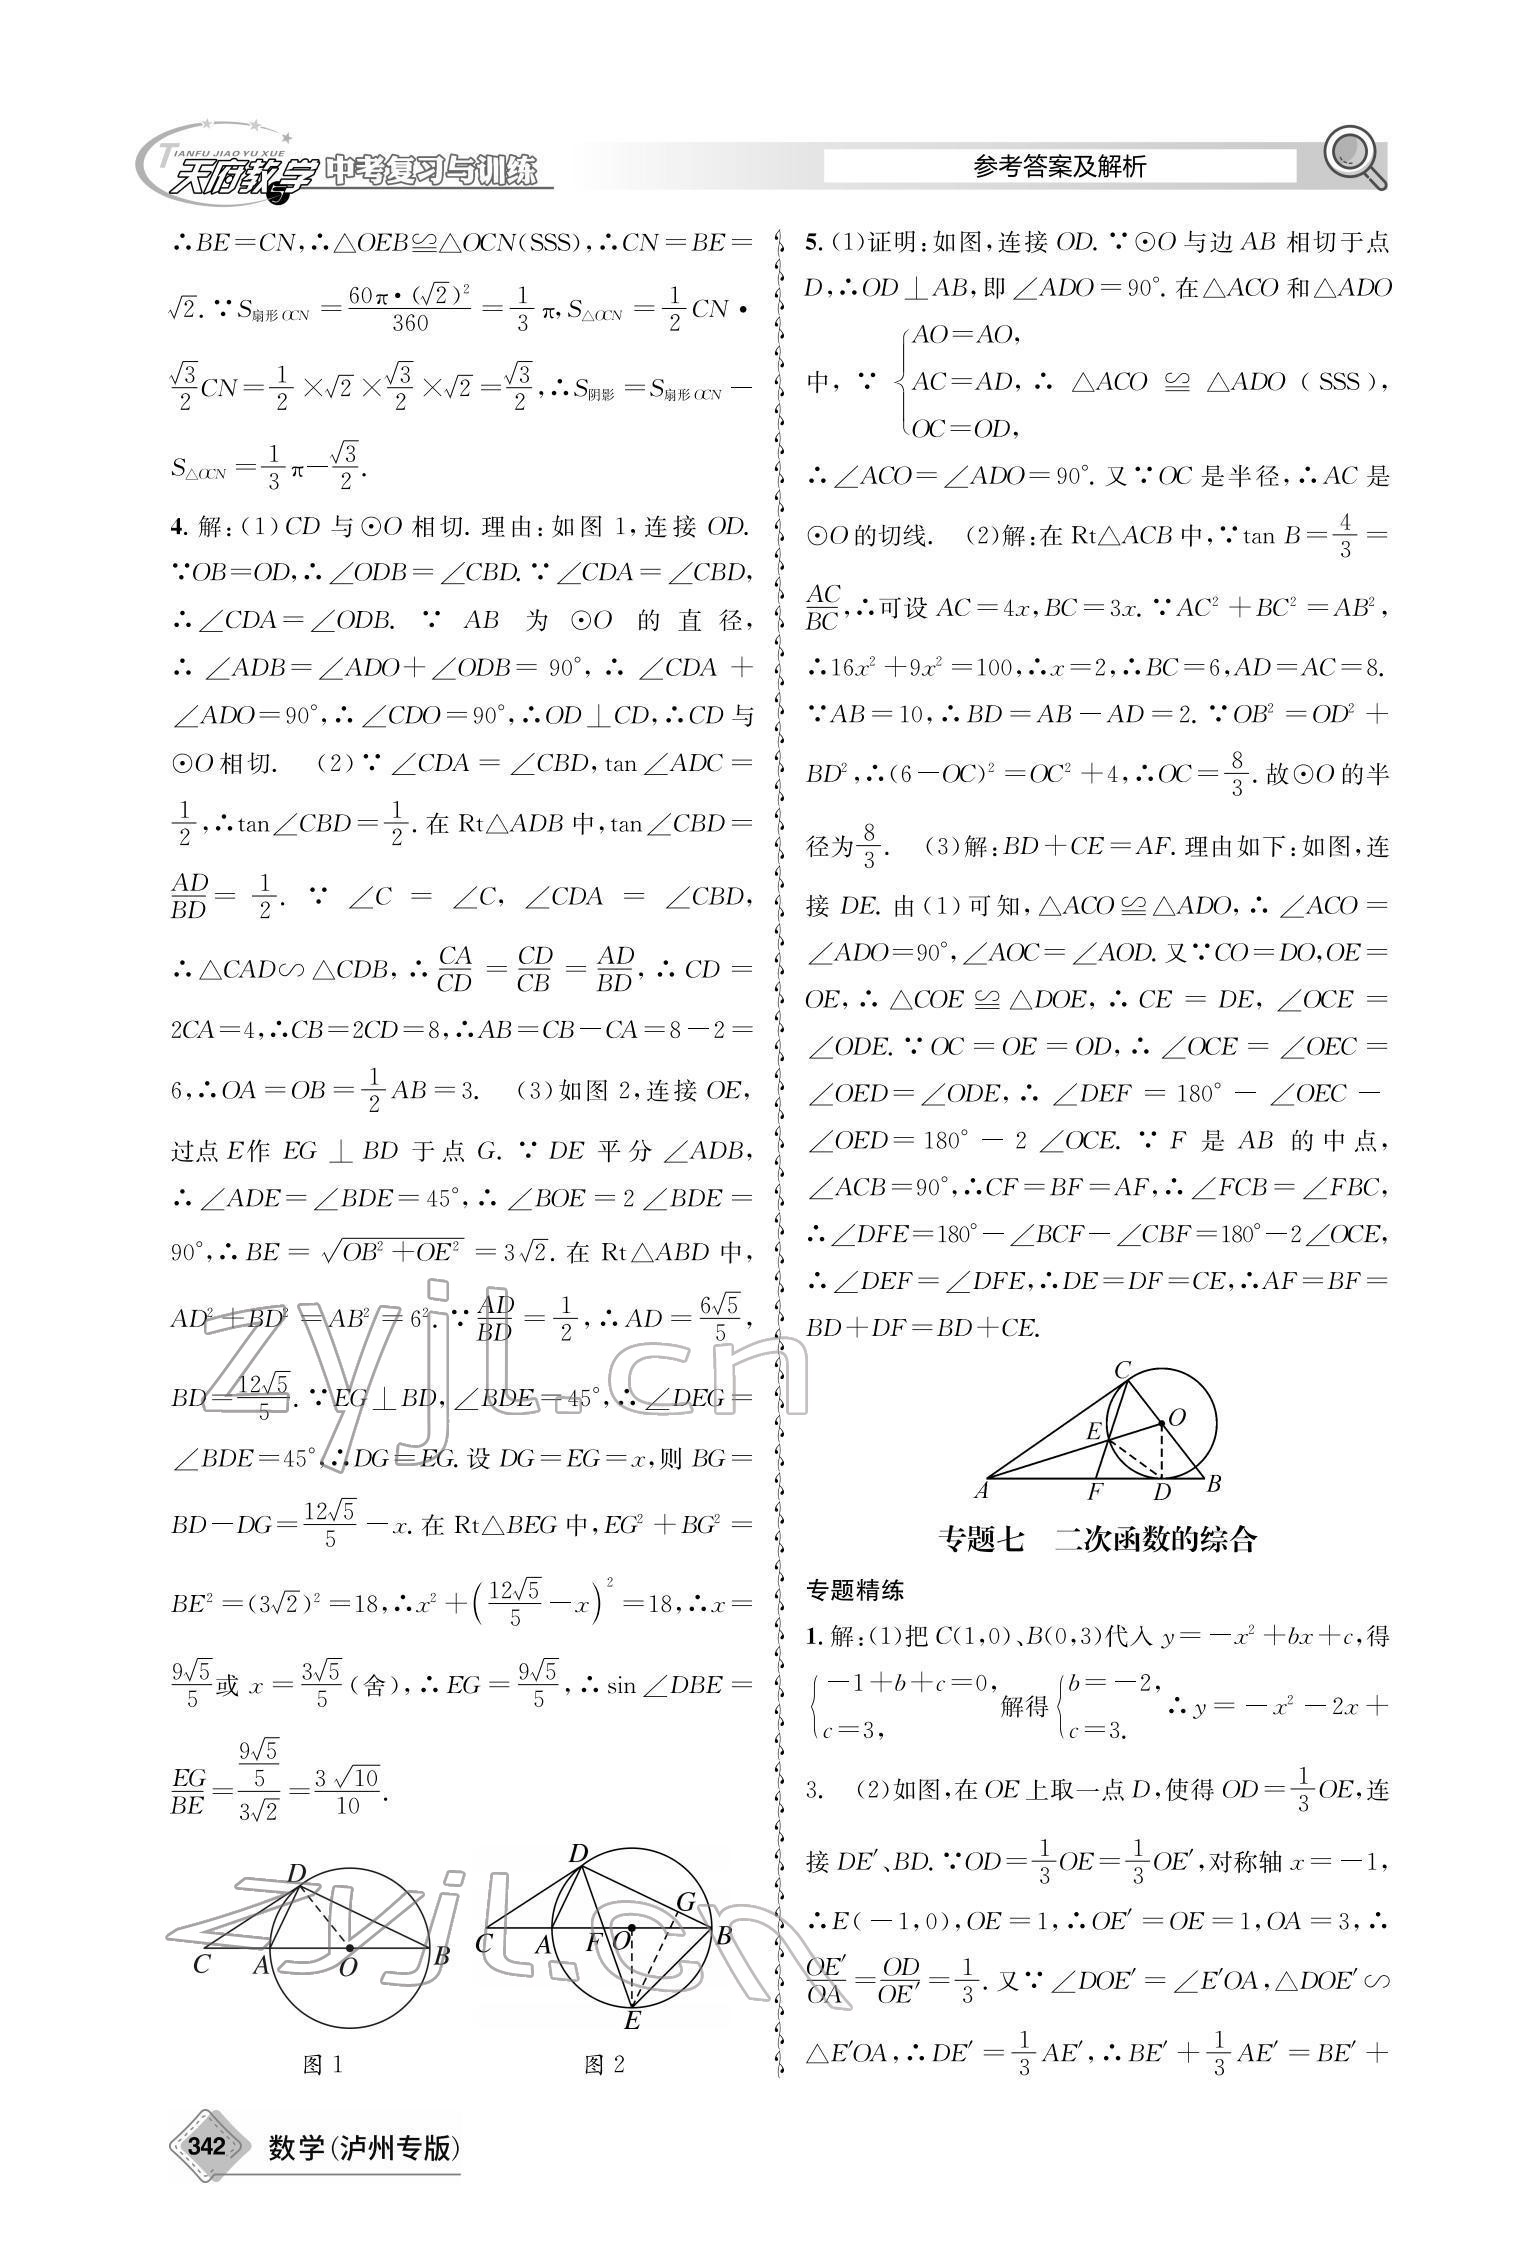 TIANFU JIAO YU XUE
天府教与学 中考复习与训练
参考答案及解析
∴BE=CN,∴△OEB≌△OCN(SSS),∴CN=BE=
√2.∵S扇形OCN=60π•(√2)²/360=1/3π,S△OCN=1/2CN•
√3/2CN=1/2×√2×√3/2×√2=√3/2,∴S阴影=S扇形OCN−
S△OCN=1/3π−√3/2.
4.解:(1)CD与⊙O相切.理由:如图1,连接OD.
∵OB=OD,∴∠ODB=∠CBD.∵∠CDA=∠CBD,
∴∠CDA=∠ODB. ∵ AB 为 ⊙O 的直径,
∴∠ADB=∠ADO+∠ODB=90°,∴∠CDA+
∠ADO=90°,∴∠CDO=90°,∴OD⊥CD,∴CD与
⊙O相切. (2)∵∠CDA=∠CBD,tan∠ADC=
1/2,∴tan∠CBD=1/2.在Rt△ADB中,tan∠CBD=
AD/BD=1/2. ∵ ∠C=∠C,∠CDA=∠CBD,
∴△CAD∽△CDB,∴CA/CD=CD/CB=AD/BD,∴CD=
2CA=4,∴CB=2CD=8,∴AB=CB−CA=8−2=
6,∴OA=OB=1/2AB=3. (3)如图2,连接OE,
过点E作EG⊥BD于点G.∵DE平分∠ADB,
∴∠ADE=∠BDE=45°,∴∠BOE=2∠BDE=
90°,∴BE=√(OB²+OE²)=3√2.在Rt△ABD中,
AD²+BD²=AB²=6².∵AD/BD=1/2,∴AD=6√5/5,
BD=12√5/5.∵EG⊥BD,∠BDE=45°,∴∠DEG=
∠BDE=45°,∴DG=EG.设DG=EG=x,则BG=
BD−DG=12√5/5−x.在Rt△BEG中,EG²+BG²=
BE²=(3√2)²=18,∴x²+(12√5/5−x)²=18,∴x=
9√5/5或x=3√5/5(舍),∴EG=9√5/5,∴sin∠DBE=
EG/BE=(9√5/5)/(3√2)=3√10/10.
D
C A O B
图1
D
G
C A F O B
E
图2
5.(1)证明:如图,连接OD.∵⊙O与边AB相切于点
D,∴OD⊥AB,即∠ADO=90°.在△ACO和△ADO
中,∵{AO=AO,
AC=AD,∴△ACO≌△ADO(SSS),
OC=OD,
∴∠ACO=∠ADO=90°.又∵OC是半径,∴AC是
⊙O的切线. (2)解:在Rt△ACB中,∵tan B=4/3=
AC/BC,∴可设AC=4x,BC=3x.∵AC²+BC²=AB²,
∴16x²+9x²=100,∴x=2,∴BC=6,AD=AC=8.
∵AB=10,∴BD=AB−AD=2.∵OB²=OD²+
BD²,∴(6−OC)²=OC²+4,∴OC=8/3.故⊙O的半
径为8/3. (3)解:BD+CE=AF.理由如下:如图,连
接DE.由(1)可知,△ACO≌△ADO,∴∠ACO=
∠ADO=90°,∠AOC=∠AOD.又∵CO=DO,OE=
OE,∴△COE≌△DOE,∴CE=DE,∠OCE=
∠ODE.∵OC=OE=OD,∴∠OCE=∠OEC=
∠OED=∠ODE,∴∠DEF=180°−∠OEC−
∠OED=180°−2∠OCE.∵F是AB的中点,
∠ACB=90°,∴CF=BF=AF,∴∠FCB=∠FBC,
∴∠DFE=180°−∠BCF−∠CBF=180°−2∠OCE,
∴∠DEF=∠DFE,∴DE=DF=CE,∴AF=BF=
BD+DF=BD+CE.
C
E O
A F D B
专题七 二次函数的综合
专题精练
1.解:(1)把C(1,0)、B(0,3)代入y=−x²+bx+c,得
{−1+b+c=0,
c=3, 解得{b=−2,
c=3. ∴y=−x²−2x+
3. (2)如图,在OE上取一点D,使得OD=1/3OE,连
接DE′、BD.∵OD=1/3OE=1/3OE′,对称轴x=−1,
∴E(−1,0),OE=1,∴OE′=OE=1,OA=3,∴
OE′/OA=OD/OE′=1/3.又∵∠DOE′=∠E′OA,△DOE′∽
△E′OA,∴DE′=1/3AE′,∴BE′+1/3AE′=BE′+
342 数学(泸州专版)
zyjl.cn
zyjl.cn